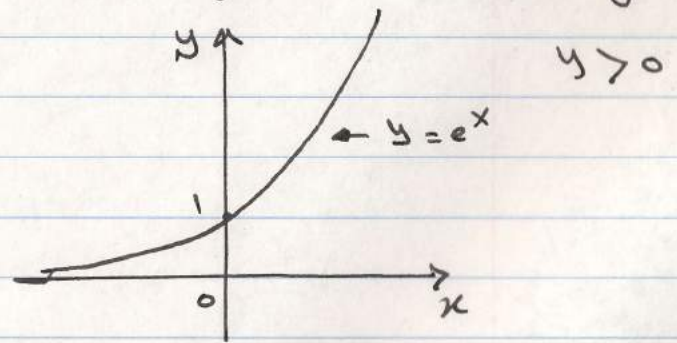 y
y > 0
← y = e^x
1
0
x